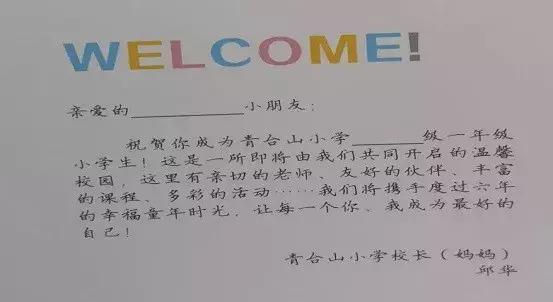 WELCOME!
亲爱的__________小朋友：
祝贺你成为青台山小学______级一年级
小学生！这是一所即将由我们共同开启的温馨
校园，这里有亲切的老师、友好的伙伴、丰富
的课程、多彩的活动……我们将携手度过六年
的幸福童年时光，让每一个你、我成为最好的
自己！
青台山小学校长（妈妈）
邱华